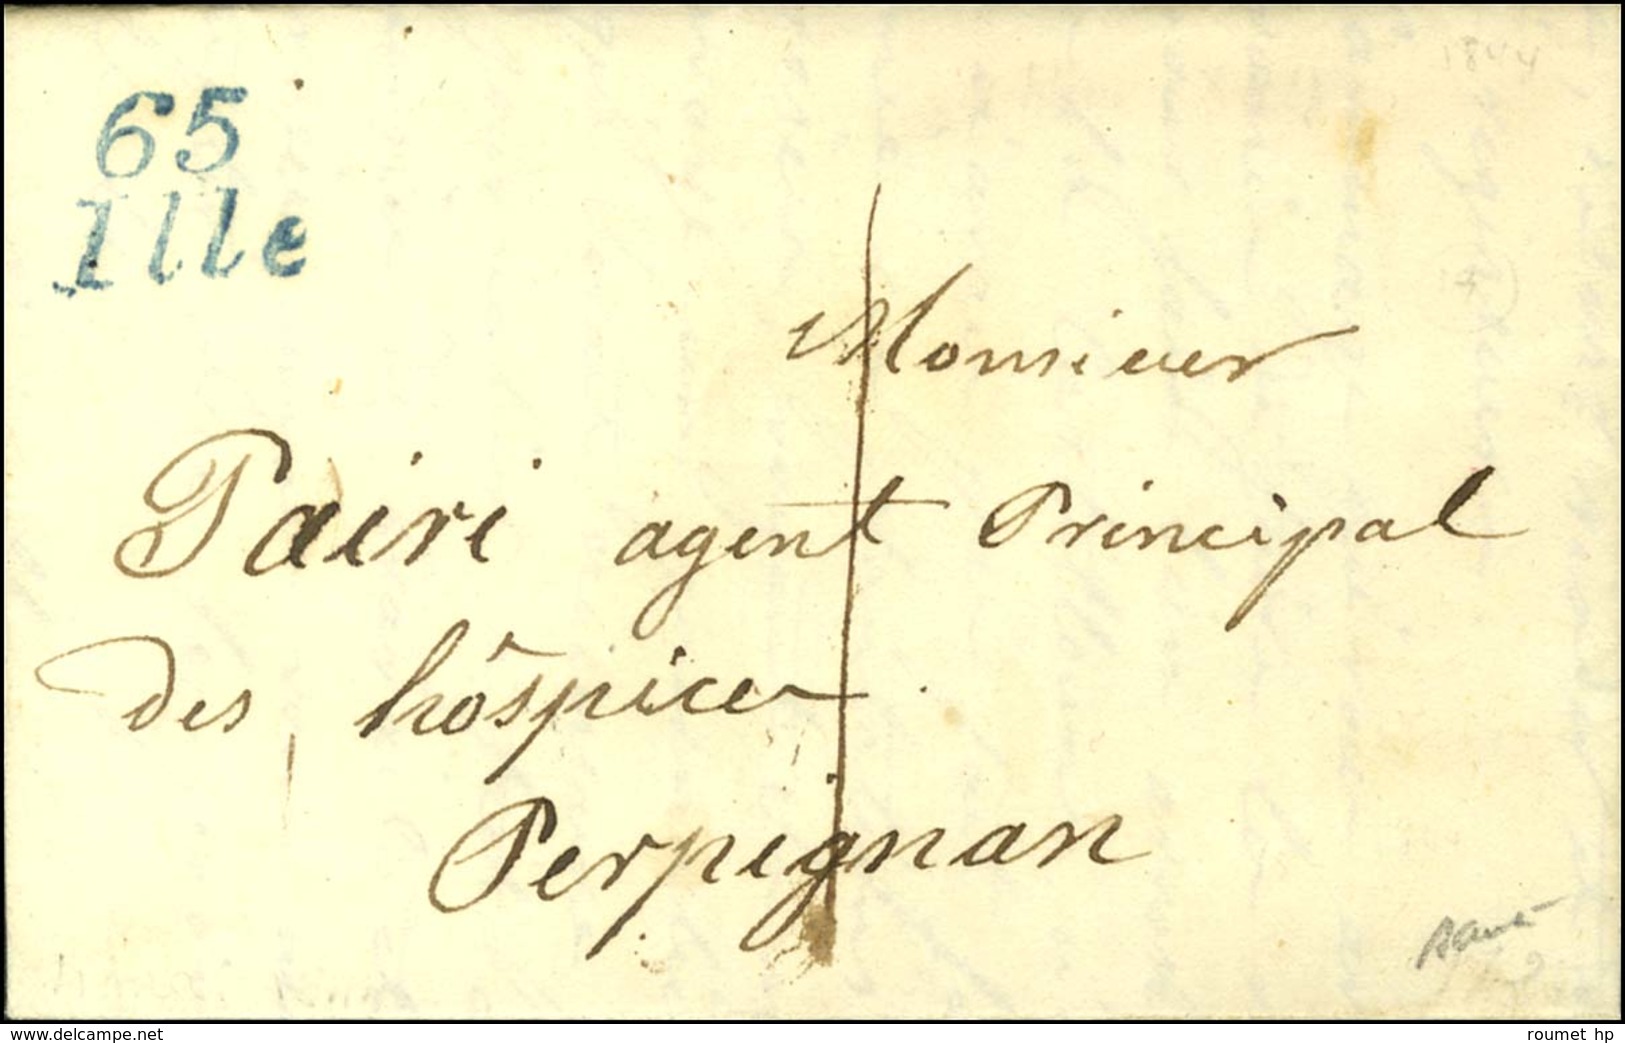 65
Ille
1844
Monsieur
Pairi agent Principal
des hôspices
Perpignan
www.delcampe.net
roumet hp